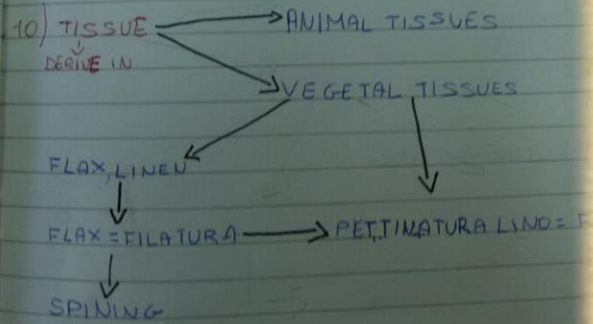 10) TISSUE
ANIMAL TISSUES
DERIVE IN
VEGETAL TISSUES
FLAX, LINEN
FLAX = FILATURA
PETTINATURA LINO =
SPINING